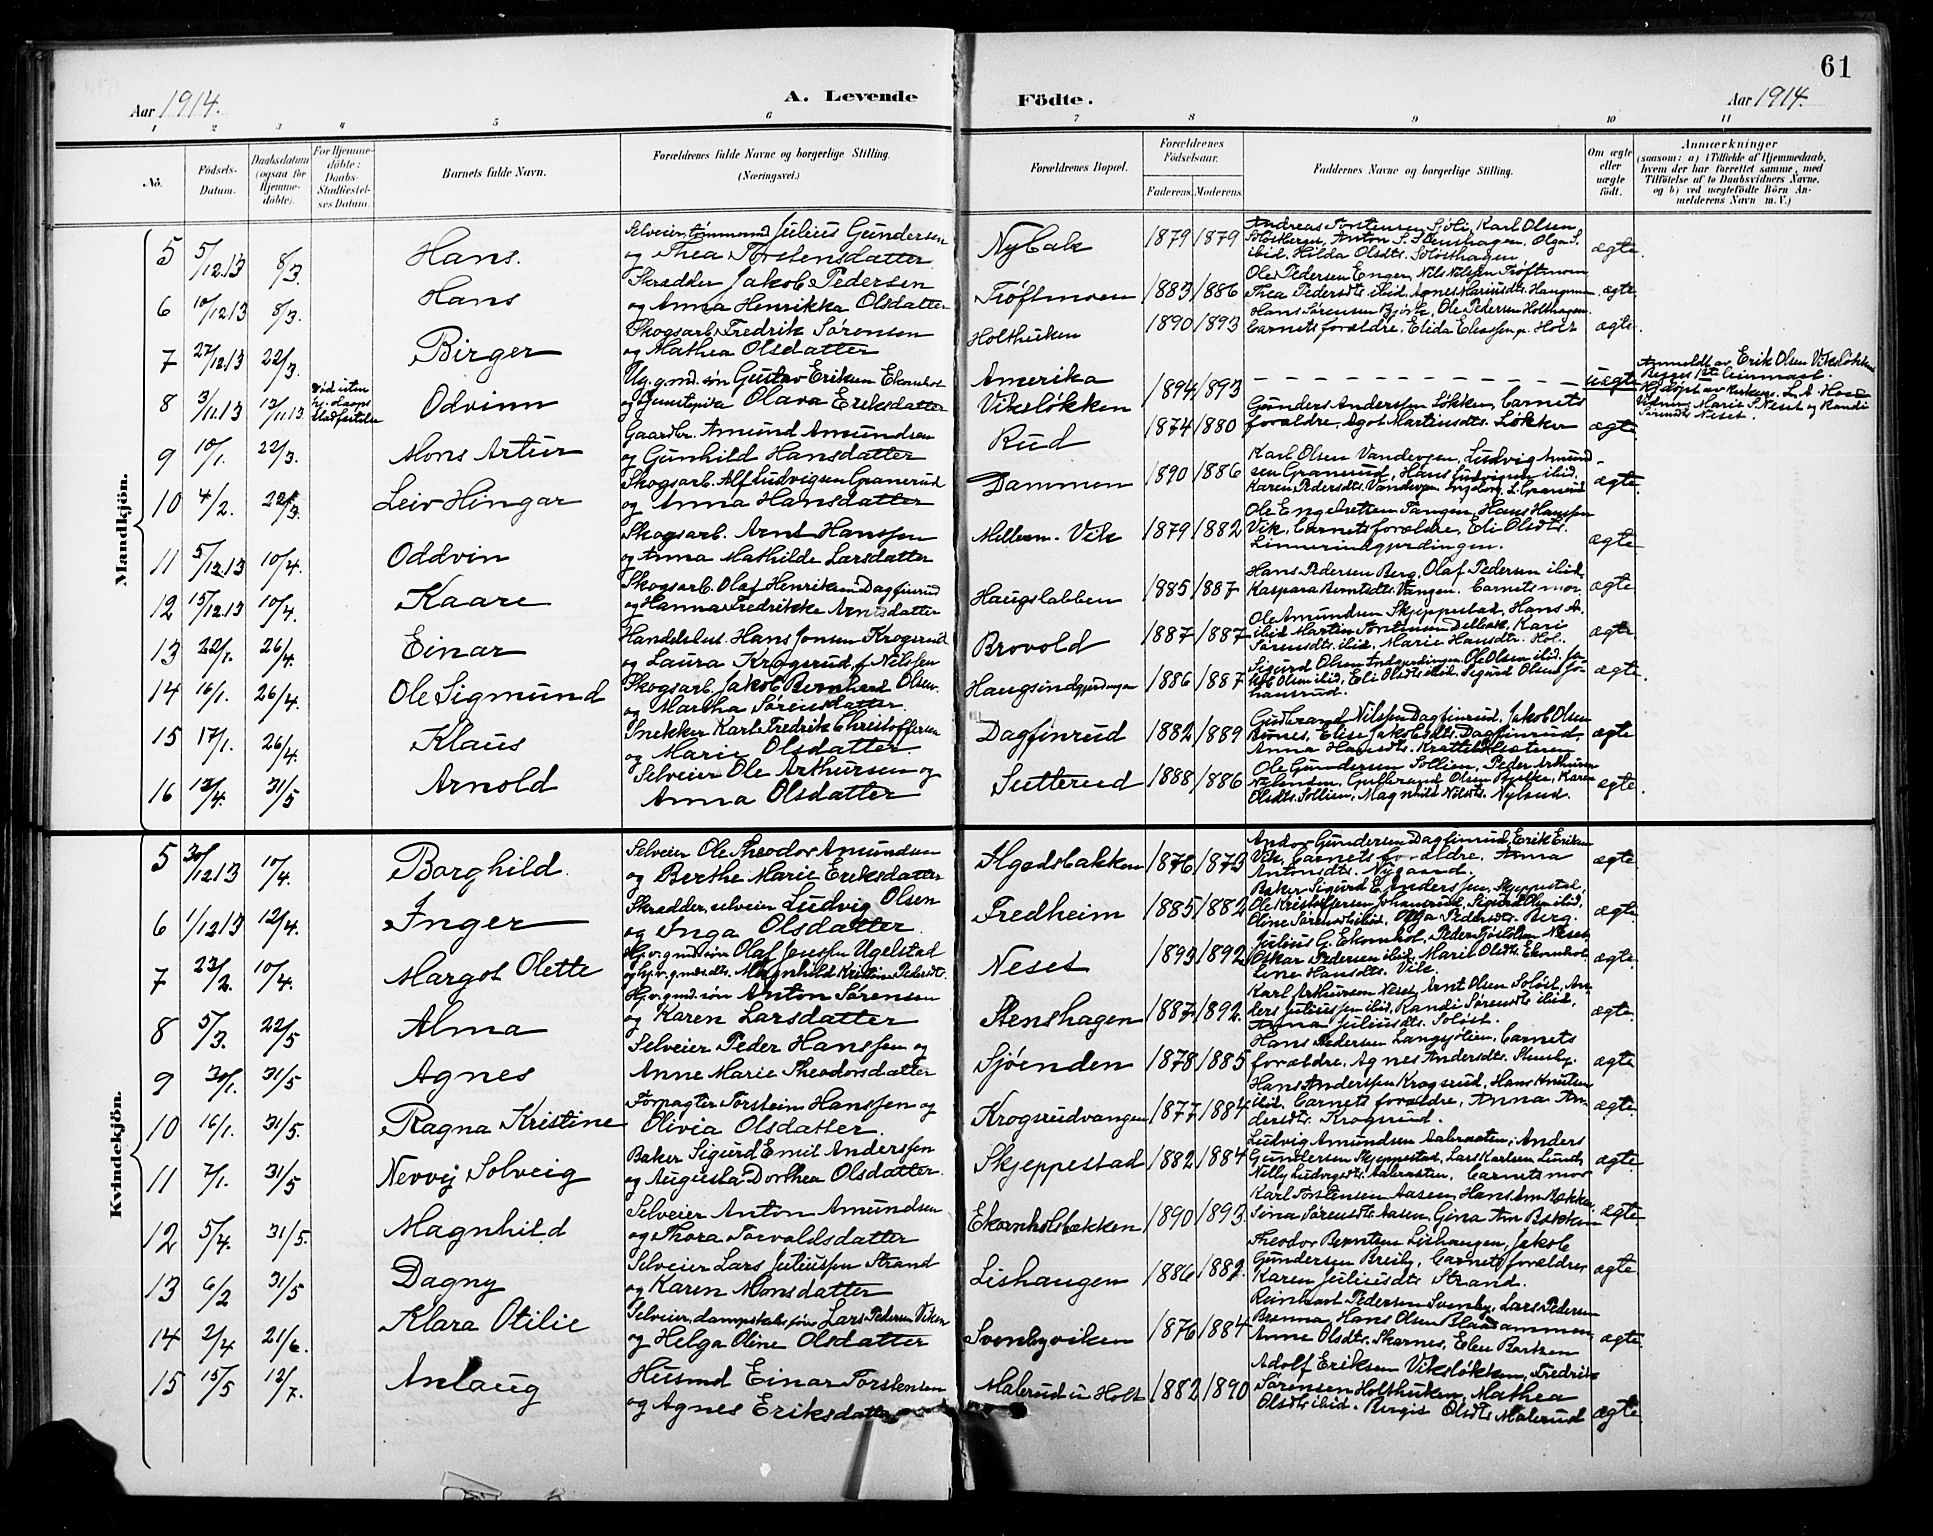 61
Aar 1914. A. Levende Födte. Aar 1914.
1 2 3 4 5 6 7 8 9 10 11
No. Födsels-Datum. Daabsdatum (ogsaa for Hjemme-döbte). For Hjemme-döbte: Daabs-Stadfæstel-ses Datum. Barnets fulde Navn. Forældrenes fulde Navne og borgerlige Stilling. (Næringsvei.) Forældrenes Bopæl. Forældrenes Födselsaar. Faderens. Moderens. Faddernes Navne og borgerlige Stilling. Om ægte eller uægte födt. Anmærkninger (saasom: a) i Tilfælde af Hjemmedaab, hvem der har forrettet samme, med Tilföielse af to Daabsvidners Navne, og b) ved uægtefödte Börn Anmelderens Navn m. V.)
Mandkjön.
5 5/12.13 8/3. Hans. Selveier, tømmermd Julius Gundersen
og Thea Torstensdatter Nybak 1879 1879 Andreas Torstensen Sjøli, Karl Olsen
Anton S. Stenshagen, Olga S.
ibid, Hilda Olsdts. ægte
6 10/12 13 8/3. Hans Skrædder Jakob Pedersen
og Anna Henrikka Olsdatter Trøftmoen 1883 1886 Ole Pedersen Enger, Nils Nilsen Trøftmoen
Thea Pedersdts ibid, Agnes ægte
7 27/12 13 22/3. Birger Skogsarb. Fredrik Sørensen
og Mathea Olsdatter Holthuken 1890 1893 Hans Sørensen Bjørke, Ole Pedersen Holthagen
barnets forældre, Elida ægte
8 3/11.13 12/11.13 Odvinn Ug. g.md. søn Gustav Eriksen Ekornhol
Olava Eriksdatter Amerika
Viksløkken 1894 1893 uægte Anmeldt av Erik Olsen Viksløkken
9 10/1. 22/3. Mons Artur Gaardbr. Amund Amundsen
og Gunhild Hansdatter Rud 1874 1880 Gunders Anderssen Løkken, barnets
forældre, Agot Martinsdts. Løkken ægte
10 4/2. 22/3. Leiv Hingar Skogsarb. Alf Ludvigsen Granerud
og Anna Hansdatter Dammen 1890 1886 Karl Olsen Vandevgen, Ludvig Amund-
sen Granerud, Hans Ludvigsen ibid,
Karen Pedersdts. Vandevgen, Ingeborg L. Granerud ægte.
11 5/12 13 10/4. Oddvin Skogsarb. Arnt Hanssen
og Anna Mathilde Larsdatter Mellem-Vik 1879 1882 Ole Engebretsen Tangen, Hans Hanssen
Vik, barnets forældre, Eli Olsdts.
Linnerindgjerdingen. ægte
12 15/12 13 10/4. Kaare Skogsarb. Olaf Henriksen Dagfinrud
og Hanna Fredrikke Arntsdatter Haugslabben 1885 1887 Hans Pedersen Berg, Olaf Pedersen ibid,
Kaspara Berntsdts. Vangen. barnets mor ægte
13 22/1. 26/4. Einar Handelsbest. Hans Jonsen Krogsrud
og Laura Krogsrud f. Nilssen Brovold 1887 1887 Ole Amundsen Skjeppestad, Hans A.
ibid, Martin Torstensen Delbæk, Kari
Sørensdts. ibid, Marie Hansdtr. Hol. ægte
14 16/1. 26/4. Ole Sigmund Skogsarb. Jakob Bernhard Olsen
og Martha Sørensdatter. Haugsindgjerdingen 1886 1887 Sigurd Olsen Indgjerdingen, Ole Olsen ibid, Ja-
kob Olsen ibid, Eli Olsdts. ibid, Sigurd Olsen Jo-
hansrud. ægte
15 17/1. 26/4. Klaus Snekker Karl Fredrik Christoffersen
og Marie Olsdatter Dagfinrud 1882 1889 Gudbrand Nilsen Dagfinrud, Jakob Olsen
Elise Jakobsdts. Dagfinrud,
Anna Hansdts. ægte
16 12/4. 31/5 Arnold Selveier Ole Arthursen og
Anna Olsdatter Sutterud 1888 1886 Ole Gundersen Sollien, Peder Arthursen
Gulbrand Olsen Karen
Olsdts. Sollien, Magnhild Nilsdts. Nylund. ægte.
Kvindekjön.
5 30/12 13 10/4. Borghild. Selveier Ole Theodor Amundsen
og Berthe Marie Eriksdatter Algodsbakken 1876 1873 Andor Gundersen Dagfinrud, Erik Eriksen
Vik, barnets forældre, Anna
Antonsdts. Nygaard. ægte
6 1/12 13 12/4. Inger Skrædder, selveier Ludvig Olsen
og Inga Olsdatter. Fredheim 1885 1882 Baker Sigurd E. Anderssen, Skjeppestad,
Ole Kristoffersen Johansrud, Sigurd Olsen ibid,
Oline Sørensdts. ibid, Olga Pedersdts. Berg. ægte
7 23/2. 10/4. Margot Olette Hj.v.g.md.søn Olaf Jenssen Ugelstad
og hj.v.g.mds.dts. Magnhild Kristine Pedersdt. Neset 1893 1892 Julius G. Ekornhol, Peder Neset,
Oskar Pedersen ibid, Marie Olsdts Ekornhol
Line Hansdts. Vik. ægte.
8 5/3. 22/5 Alma Hj.v.g.md.søn Anton Sørensen
og Karen Larsdatter Stenshagen 1887 1892. Karl Arthursen Neset, Arnt Olsen Soløst, An-
ders Juliussen ibid, Randi Sørensdts ibid,
Anna Juliusdts. Soløst. ægte.
9 30/1. 31/5 Agnes Selveier Peder Hanssen og
Anne Marie Theodorsdatter Sjøenden 1878 1885 Hans Pedersen Langsjølien, barnets
forældre, Agnes Andersdts. Stensby. ægte
10 16/1. 31/5. Ragna Kristine Forpagter Torstein Hanssen og
Olivia Olsdatter. Krogsrudvangen 1877 1884 Hans Anderssen Krogsrud, Hans Knutsen
ibid, barnets forældre, Anna An-
dersdts. Krogsrud. ægte
11 7/1. 31/5 Nevvij Solveig Baker Sigurd Emil Anderssen
og Augusta Dorthea Olsdatter. Skjeppestad 1882 1884 Ludvig Amundsen Aabraaten, Anders
Gundersen Skjeppestad, Lars Karlsen Lund,
Nelly Ludvigsdts. Aabraaten, barnets mor ægte
12 5/4. 31/5. Magnhild Selveier Anton Amundsen
og Thora Torvaldsdatter Ekornholsbakken 1890 1893. Karl Torstensen Aasen, Hans Am. Bakken,
Sina Sørensdts Aasen, Gina Am Bakken ægte
13 6/2 31/5 Dagny Selveier Lars Juliussen Strand
og Karen Monsdatter Lishaugen 1886 1882. Theodor Berntsen Lishaugen, Jakob
Gundersen Breiby, barnets forældre,
Karen Juliusdts. Strand. ægte
14 2/4 21/6. Klara Otilie Selveier, dampskibsfører Lars Pedersen Viken
og Helga Oline Olsdatter Svenbyviken 1876 1884 Reinhart Pedersen Svenby, Lars Pedersen
Brenna, Hans Olsen Blaadammen,
Anne Olsdts. Skarnes, Elen Bertsen ægte
15 15/5 12/7. Anlaug Husmd Einar Torstensen
og Agnes Eriksdatter Malerud u Holt 1882 1890 Adolf Eriksen Viksløkken, Fredrik
Sørensen Holthuken, Mathea
Olsdts ibid. Bergit Olsdts Malerud ægte